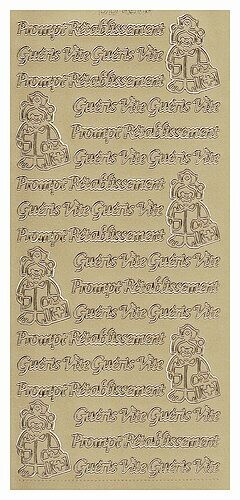 Prompt Rétablissement
Guéris Vite Guéris Vite
Prompt Rétablissement
Guéris Vite Guéris Vite
Prompt Rétablissement
Guéris Vite Guéris Vite
Prompt Rétablissement
Guéris Vite Guéris Vite
Prompt Rétablissement
Guéris Vite Guéris Vite
Prompt Rétablissement
Guéris Vite Guéris Vite
Prompt Rétablissement
Guéris Vite Guéris Vite
Prompt Rétablissement
Guéris Vite Guéris Vite
Prompt Rétablissement
Guéris Vite Guéris Vite